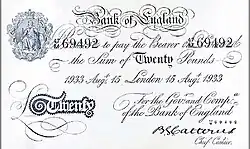 Bank of England
69492 to pay the Bearer 69492
the Sum of Twenty Pounds
1933 Aug. 15 London 15 Aug. 1933
For the Gov.r and Comp.a
of the Bank of England
69492
Twenty
B.G. Catterns
Chief Cashier.